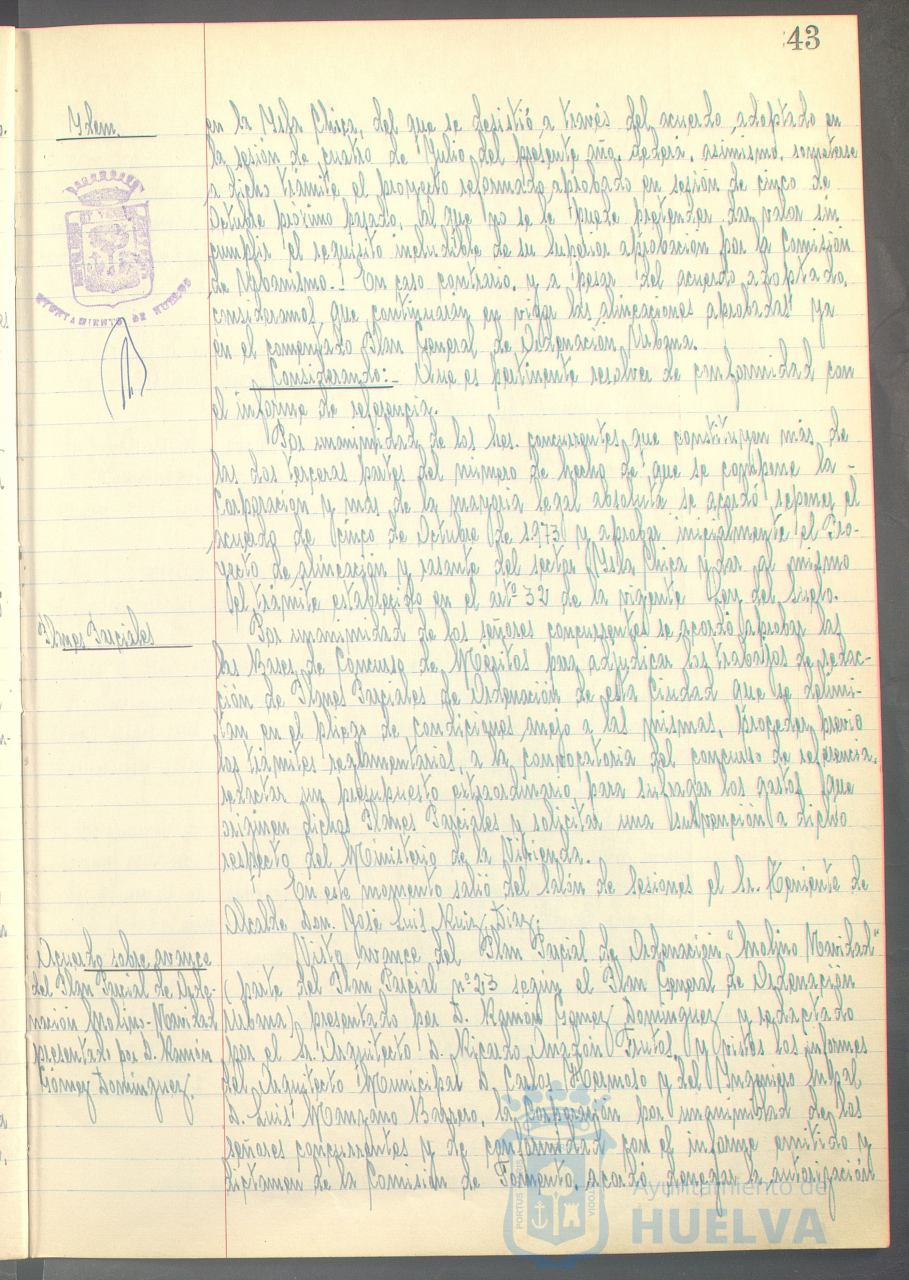 43
Idem.
en la Isla Chica, del que se desistió a través del acuerdo adoptado en
la sesión de cuatro de Julio del presente año, deberá, asimismo, someterse
a dicho trámite el proyecto reformado aprobado en sesión de cinco de
Octubre próximo pasado, al que no se le puede pretender dar valor sin
cumplir el requisito ineludible de su superior aprobación por la Comisión
de Urbanismo.- En caso contrario, y a pesar del acuerdo adoptado,
consideramos que continuarán en vigor las alineaciones aprobadas ya
en el comentado Plan General de Ordenación Urbana.
Considerando:- Que es pertinente resolver de conformidad con
el informe de referencia.
Por unanimidad de los Sres. concurrentes que constituyen más de
las dos terceras partes del número de hecho de que se compone la
Corporación y más de la mayoría legal absoluta se acordó reponer el
acuerdo de cinco de Octubre de 1973 y aprobar inicialmente el Pro-
yecto de alineación y rasante del sector Isla Chica y dar al mismo
el trámite establecido en el artº 32 de la vigente Ley del Suelo.
Planes Parciales
Por unanimidad de los señores concurrentes se acordó aprobar las
las Bases de Concurso de Méritos para adjudicar los trabajos de redac-
ción de Planes Parciales de Ordenación de esta Ciudad que se delimi-
tan en el pliego de condiciones anejo a las mismas, proceder, previo
los trámites reglamentarios, a la convocatoria del concurso de referencia,
redactar un presupuesto extraordinario para sufragar los gastos que
originen dichos Planes Parciales y solicitar una subvención a dicho
respecto del Ministerio de la Vivienda.
En este momento salió del Salón de Sesiones el Sr. Teniente de
Alcalde Don José Luis Ruiz Díaz.
Acuerdo sobre avance
del Plan Parcial de Orde-
nación Molino-Navidad
presentado por D. Ramón
Gómez Domínguez.
Visto avance del Plan Parcial de Ordenación "Molino Navidad"
(parte del Plan Parcial nº 23 según el Plan General de Ordenación
Urbana) presentado por D. Ramón Gómez Domínguez y redactado
por el Sr. Arquitecto D. Ricardo Anadón Frutos y vistos los informes
del Arquitecto Municipal D. Carlos Hermoso y del Ingeniero
D. Luis Manzano Borrero, la Corporación por unanimidad de los
señores concurrentes y de conformidad con el informe emitido y
dictamen de la Comisión de Fomento, acordó denegar la autorización
AYUNTAMIENTO DE HUELVA
PORTUS
CUSTODIA
Ayuntamiento de
HUELVA